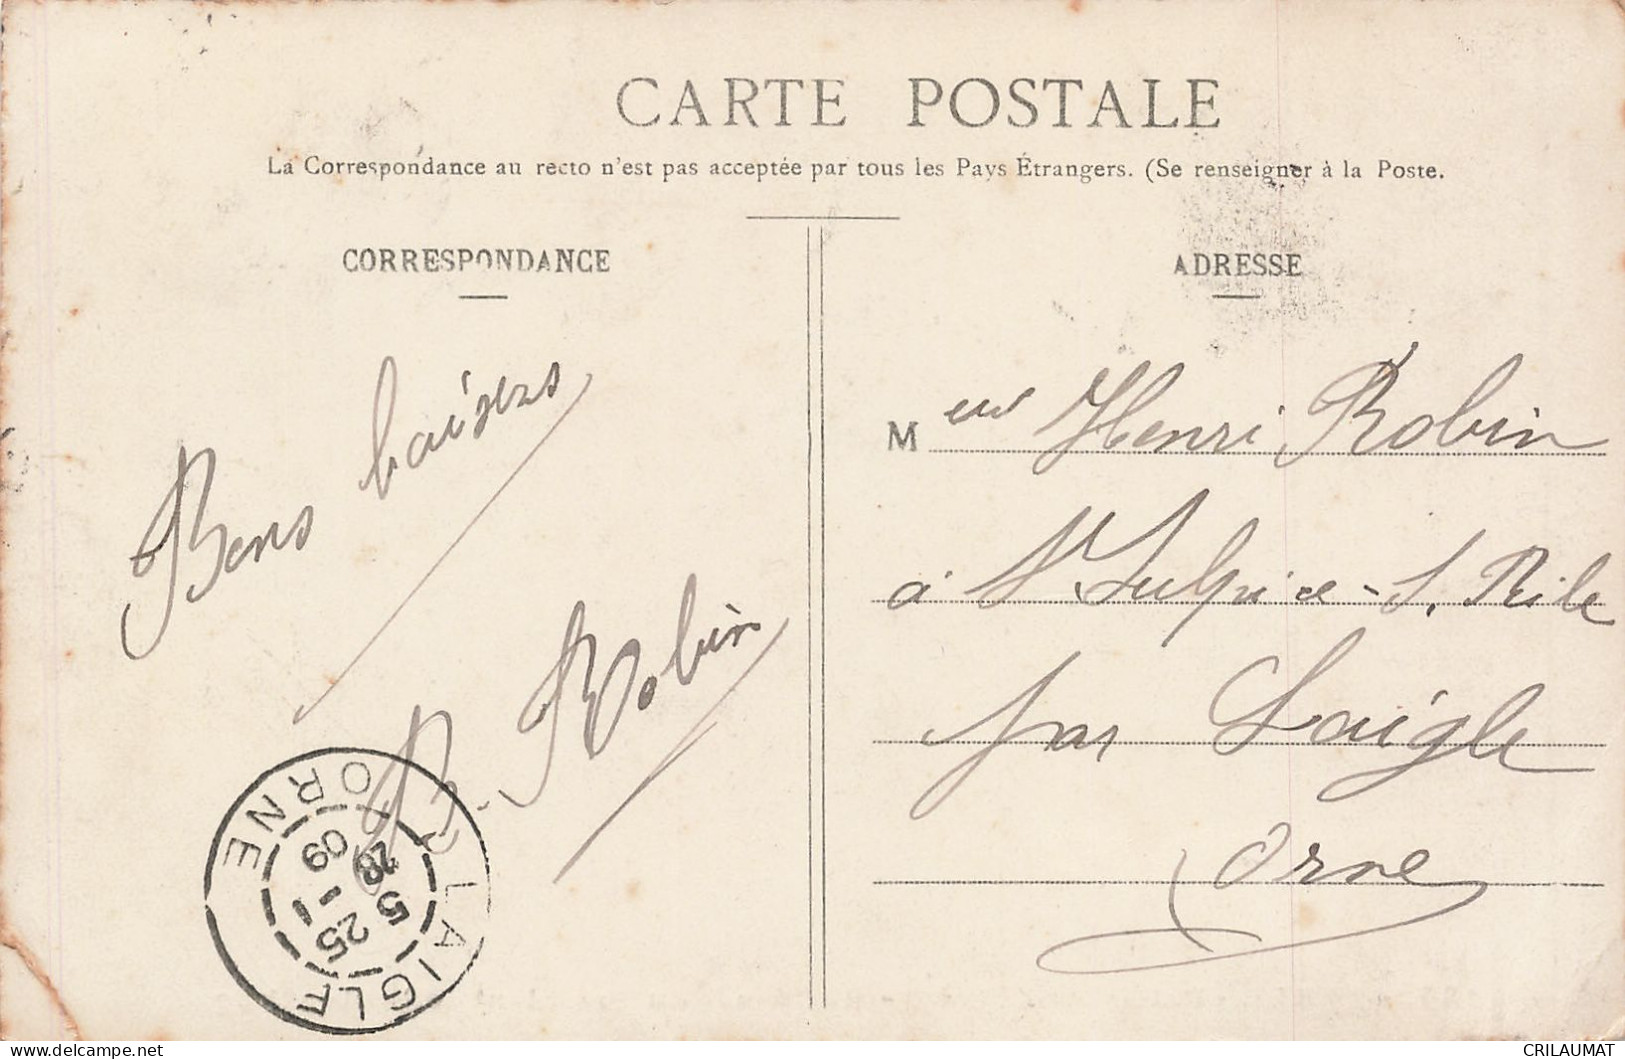 CARTE POSTALE
La Correspondance au recto n'est pas acceptée par tous les Pays Étrangers. (Se renseigner à la Poste.
CORRESPONDANCE
Bons baisers
B. Robin
LAIGLE
ORNE
5
25 - 1
09
ADRESSE
Meur Henri Robin
à St Sulpice-s. Rile
par Laigle
Orne
CRILAUMAT